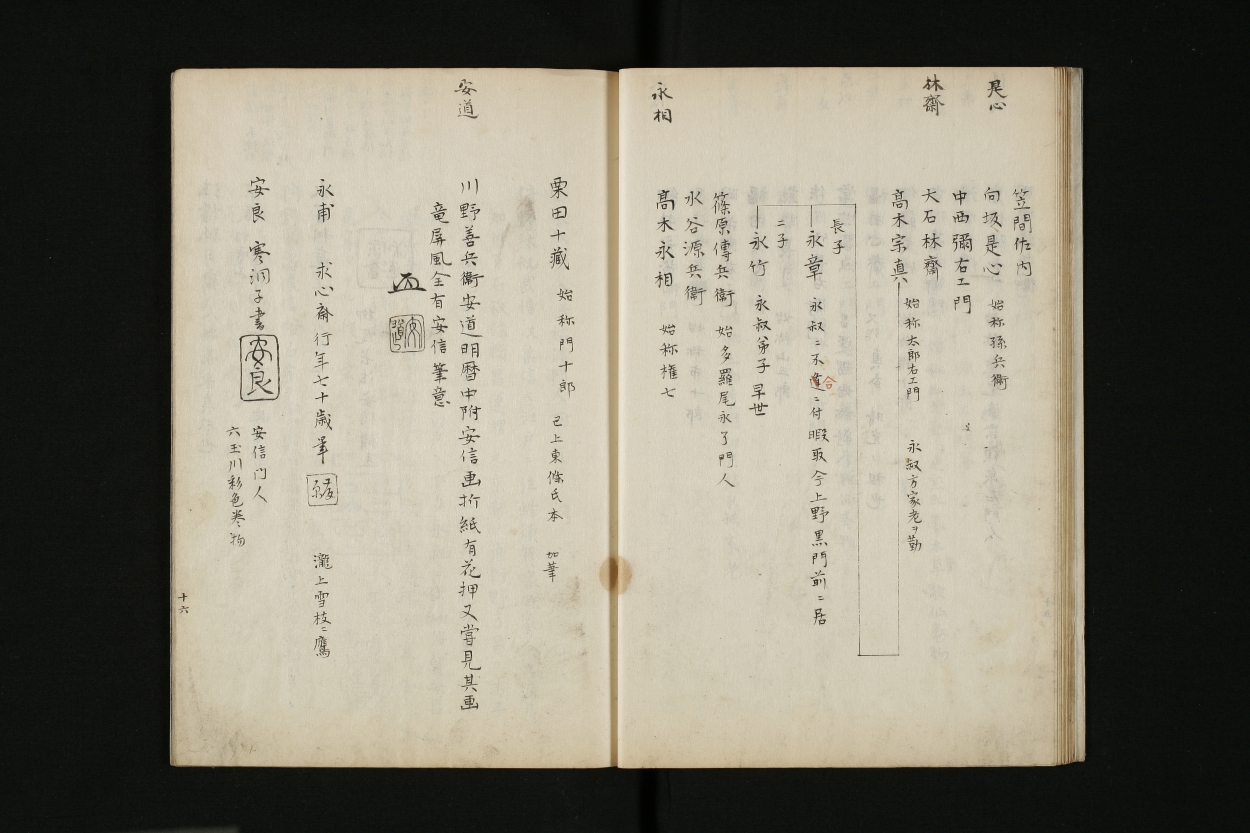 是心
林齋
永相
笠間佐内
向坂是心 始称孫兵衞
中西彌右エ門
大石林齋
高木宗真 始称太郎右エ門 永叔方家老ヲ勤
長子
永章 永叔ニ不道ニ付暇取今上野黒門前ニ居
合
二子
永竹 永叔弟子 早世
篠原傳兵衞 始多羅尾永了門人
水谷源兵衞
高木永相 始称権七
安道
栗田十藏 始称門十郎 已上東條氏本 加筆
川野善兵衞安道明暦中附安信画折紙有花押又嘗見其画
竜屏風全有安信筆意
安道
永甫 求心齋行年七十歳筆 瀧上雪枝ニ鷹
安良 寒洞子書 安良 安信門人
六玉川彩色巻物
十六